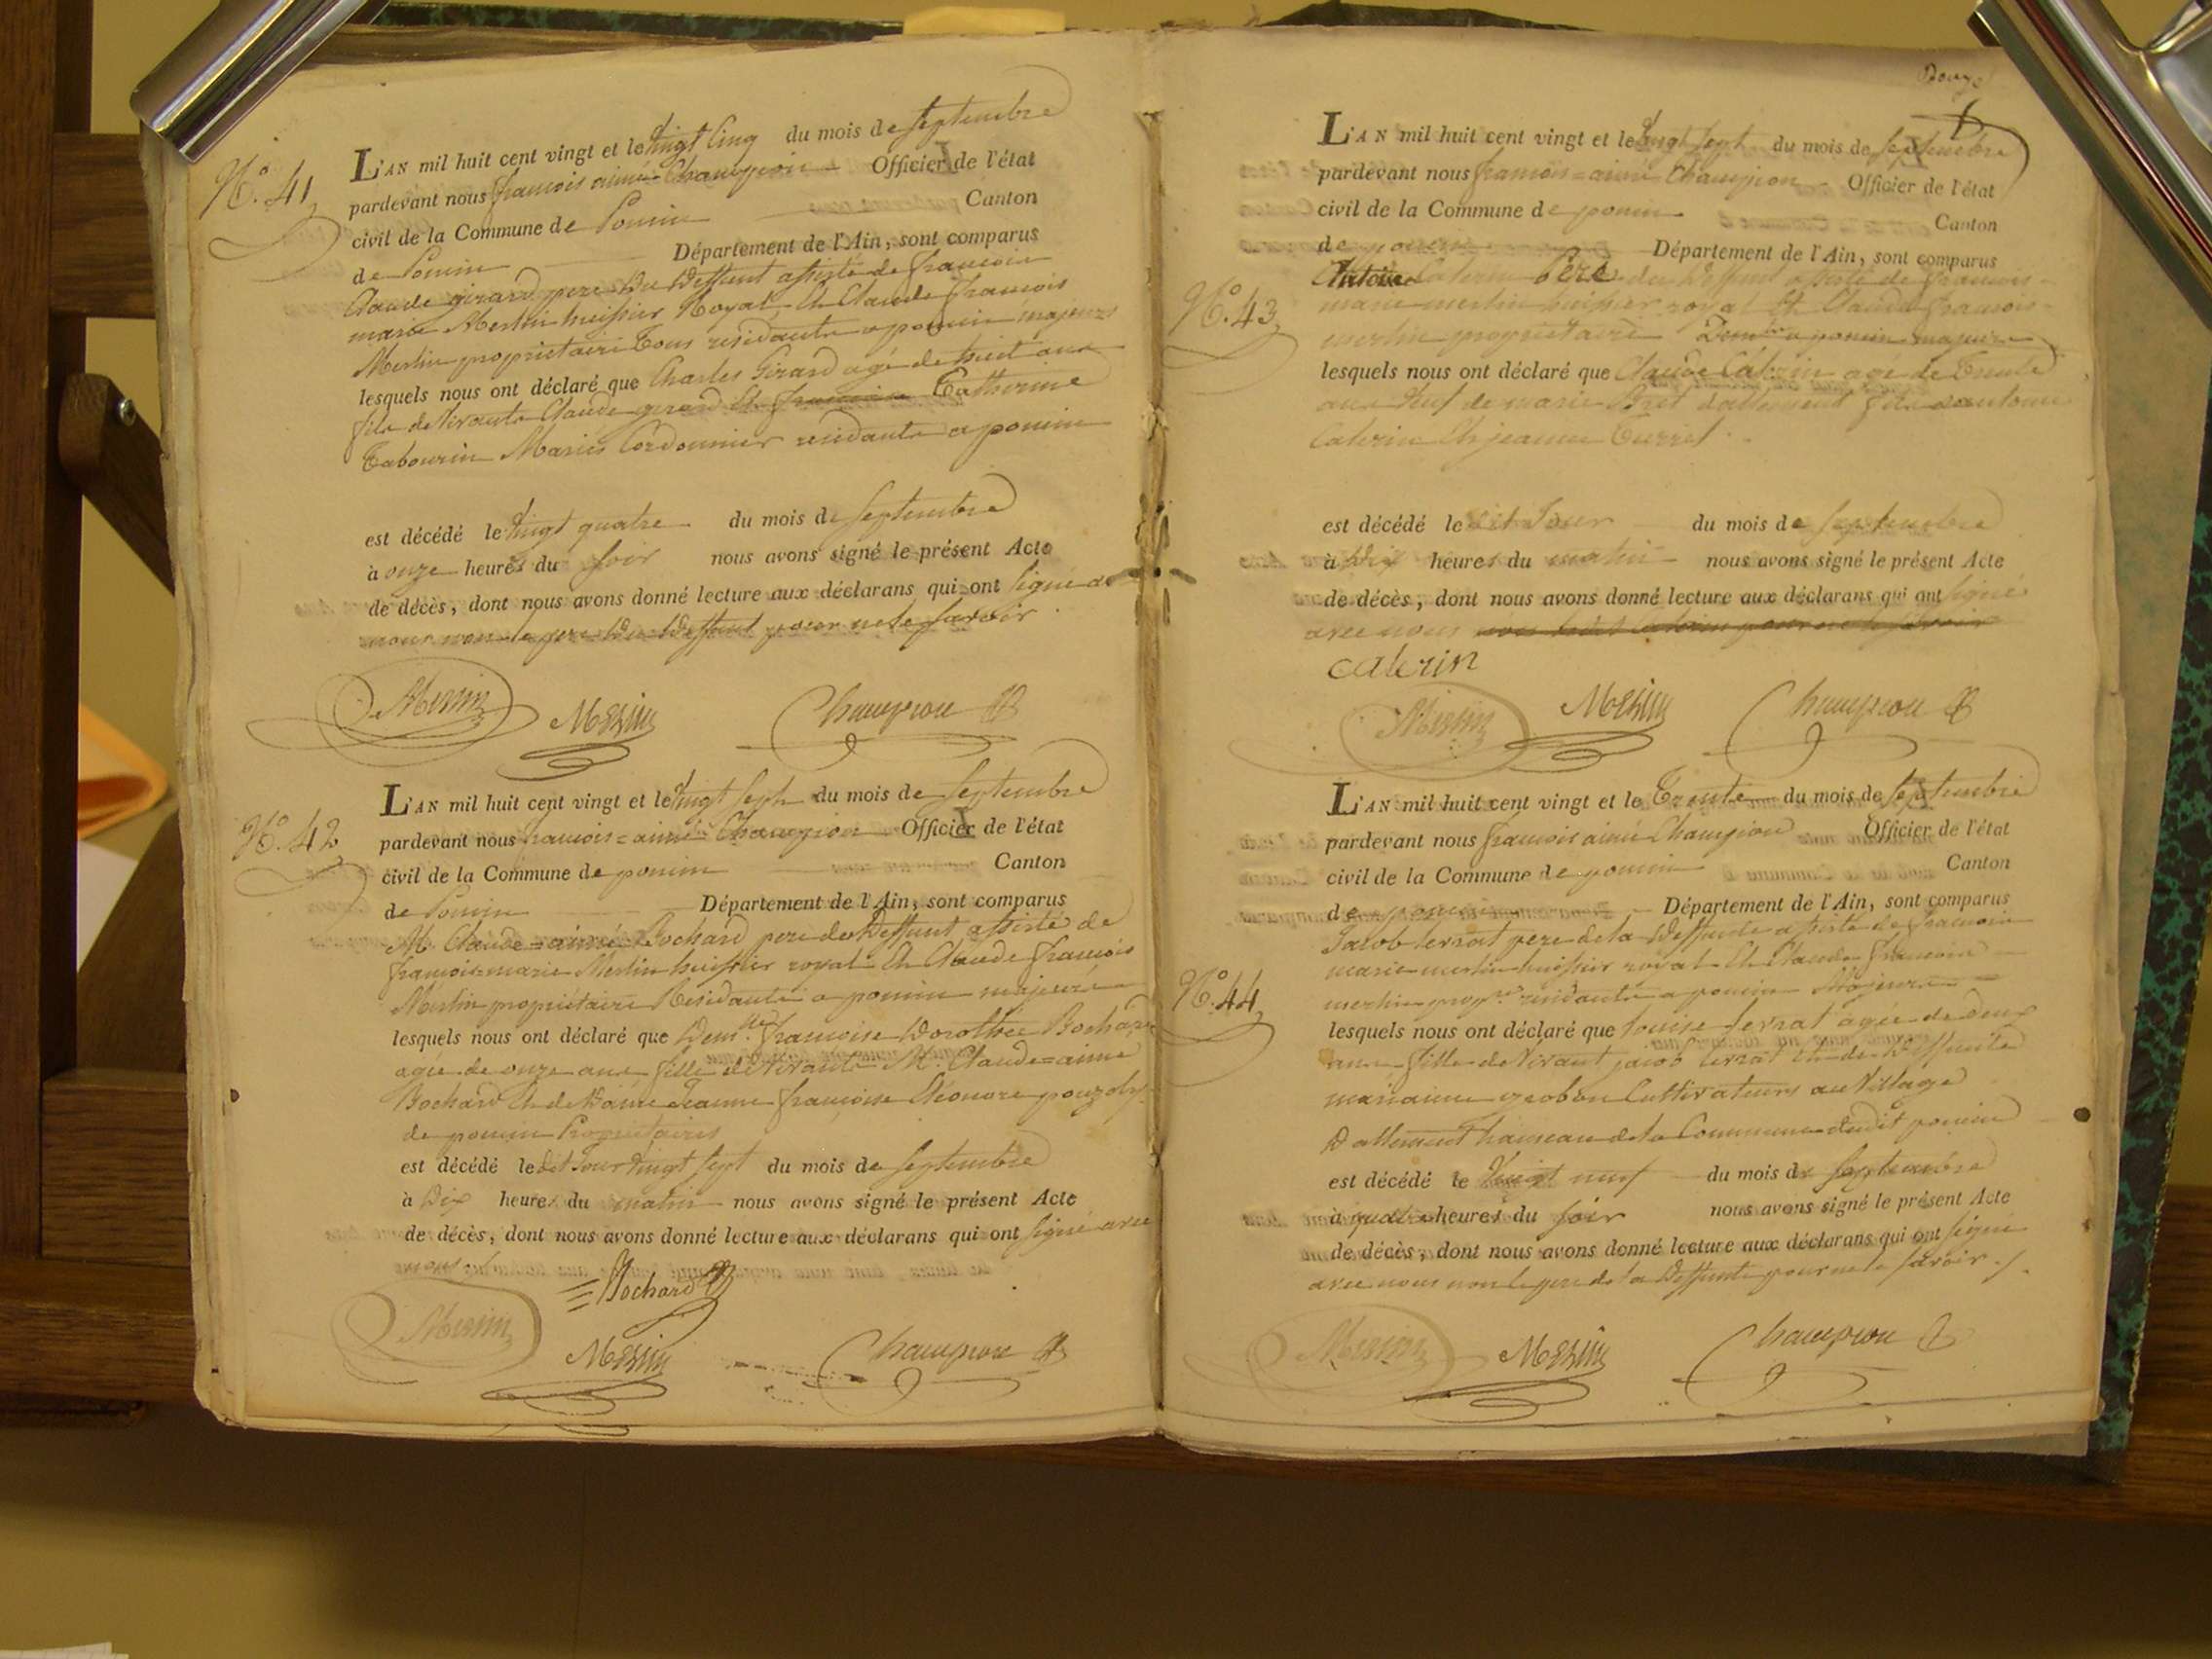 N.º 41,
L'AN mil huit cent vingt et le vingt cinq du mois de septembre
pardevant nous françois aimé Champion Officier de l'état
civil de la Commune de Poncin Canton
de Poncin Département de l'Ain, sont comparus
Claude girard pere du deffunt assisté de francois
marie Merlin huissier Royal et Claude francois
Merlin proprietaire tous residants a poncin majeurs
lesquels nous ont déclaré que Charles Girard agé de huit ans
fils de vivants Claude girard et francoise Catherine
Tabourin Mariés Cordonnier residants a poncin
est décédé le vingt quatre du mois de septembre
à onze heures du soir nous avons signé le présent Acte
de décès, dont nous avons donné lecture aux déclarans qui ont signé avec
nous non le pere du deffunt pour ne le savoir
Merlin Merlin Champion
N.º 42,
L'AN mil huit cent vingt et le vingt sept du mois de septembre
pardevant nous francois=aimé Champion Officier de l'état
civil de la Commune de poncin Canton
de Poncin Département de l'Ain, sont comparus
Mr Claude=aimé Bochard pere de deffunt assisté de
françois marie Merlin huissier royal et Claude françois
Merlin propriétaire Residants a poncin majeurs
lesquels nous ont déclaré que Demlle francoise Dorothée Bochard
agée de onze ans fille de vivants Mr Claude=aimé
Bochard et de Dame Jeanne françoise Eléonore
de poncin Proprietaires
est décédé le dit Jour vingt sept du mois de septembre
à Dix heures du matin nous avons signé le présent Acte
de décès, dont nous avons donné lecture aux déclarans qui ont signé avec
nous
Bochard
Merlin Merlin Champion
N.º 43,
L'AN mil huit cent vingt et le vingt sept du mois de septembre
pardevant nous francois=aimé Champion Officier de l'état
civil de la Commune de poncin Canton
de poncin Département de l'Ain, sont comparus
Antoine Caterin Père du deffunt assisté de francois
marie merlin huissier royal et Claude francois
merlin proprietaire a poncin majeurs
lesquels nous ont déclaré que Claude Caterin age de Trente
ans de marie d'allement fils d'antoine
Caterin et jeanne
est décédé le dit Jour du mois de septembre
à Dix heures du matin nous avons signé le présent Acte
de décès, dont nous avons donné lecture aux déclarans qui ont signé
avec nous
caterin
Merlin Merlin Champion
N.º 44,
L'AN mil huit cent vingt et le Trente du mois de septembre
pardevant nous francois aimé Champion Officier de l'état
civil de la Commune de poncin Canton
de poncin Département de l'Ain, sont comparus
Jacob pere de la deffunte assisté de francois
marie merlin huissier royal et Claude francois
merlin propre residants a poncin Majeurs
lesquels nous ont déclaré que louise agée de deux
ans fille de vivant jacob et de deffunte
marianne Cultivateurs au Village
D'allement hameau de la Commune dudit poncin
est décédé le Vingt neuf du mois de septembre
à quatre heures du soir nous avons signé le présent Acte
de décès, dont nous avons donné lecture aux déclarans qui ont signé
avec nous non le pere de la deffunte pour ne le savoir ./.
Merlin Merlin Champion